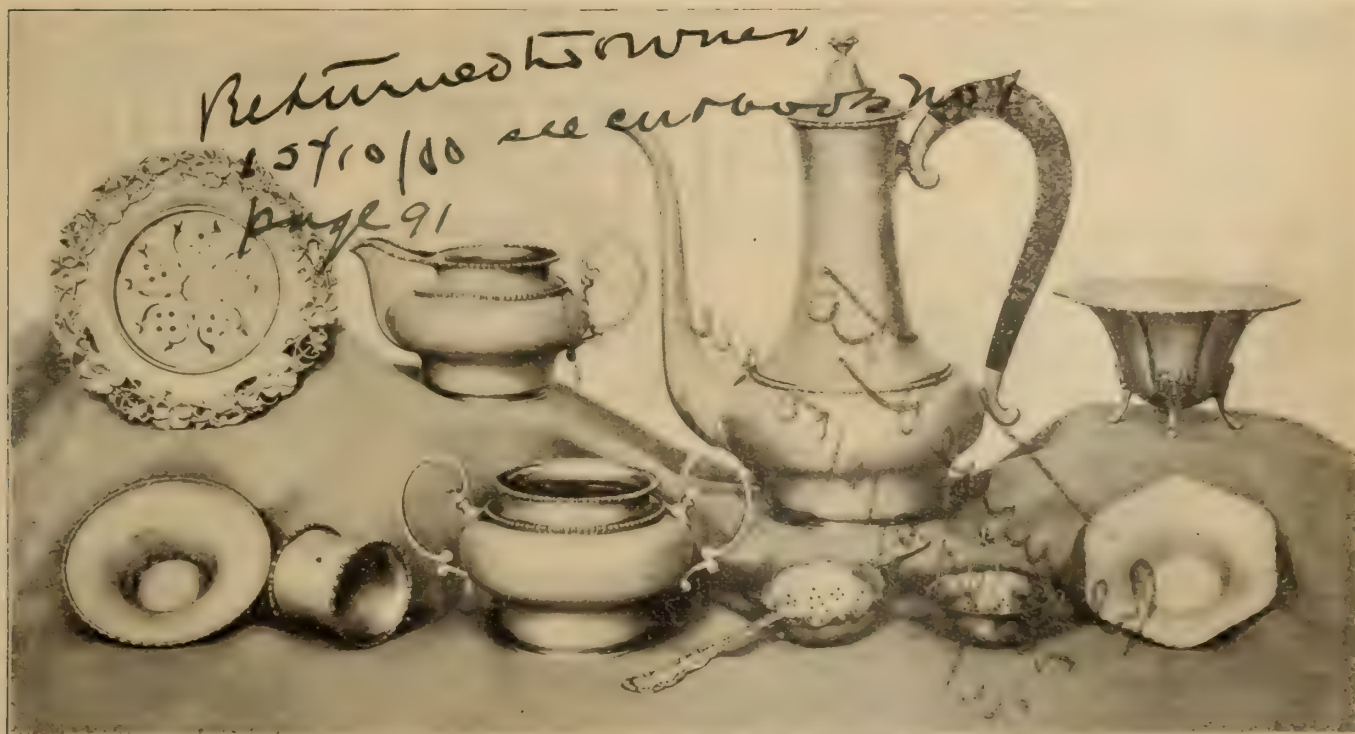 Returned to owner
15/10/00 see cutbook No 1
page 91